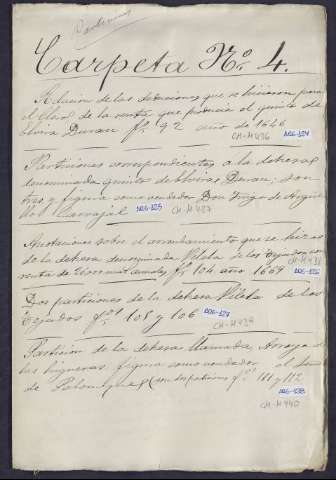 Particiones
Carpeta Nº. 4.
Relación de las deducciones que se hicieron para
el Clao de la renta que producia el quinto de
Elvira Duran fº 92 año de 1646
CH-M436 A06-124
Particiones correspondientes a la dehesa
denominada quinto de Elviras Duran; son
tres y figura como vendador Don Diego de Argüe
llo Carvajal A06-125 CH-M437
Anotaciones sobre el arrendamiento que se hizo
de la dehesa denominada Pileta de los Tejados con
renta de fº. 104 año 1669 CH-M438 A06-126
Dos particiones de la dehesa Pileta de los
Tejados fºs 105 y 106 A06-127 CH-M439
Particion de la dehesa llamada Arroyo de
las higueras, figura como vendador el
de Palomeque (son las particiones fºs 111 y 112
A06-128
CH-M440